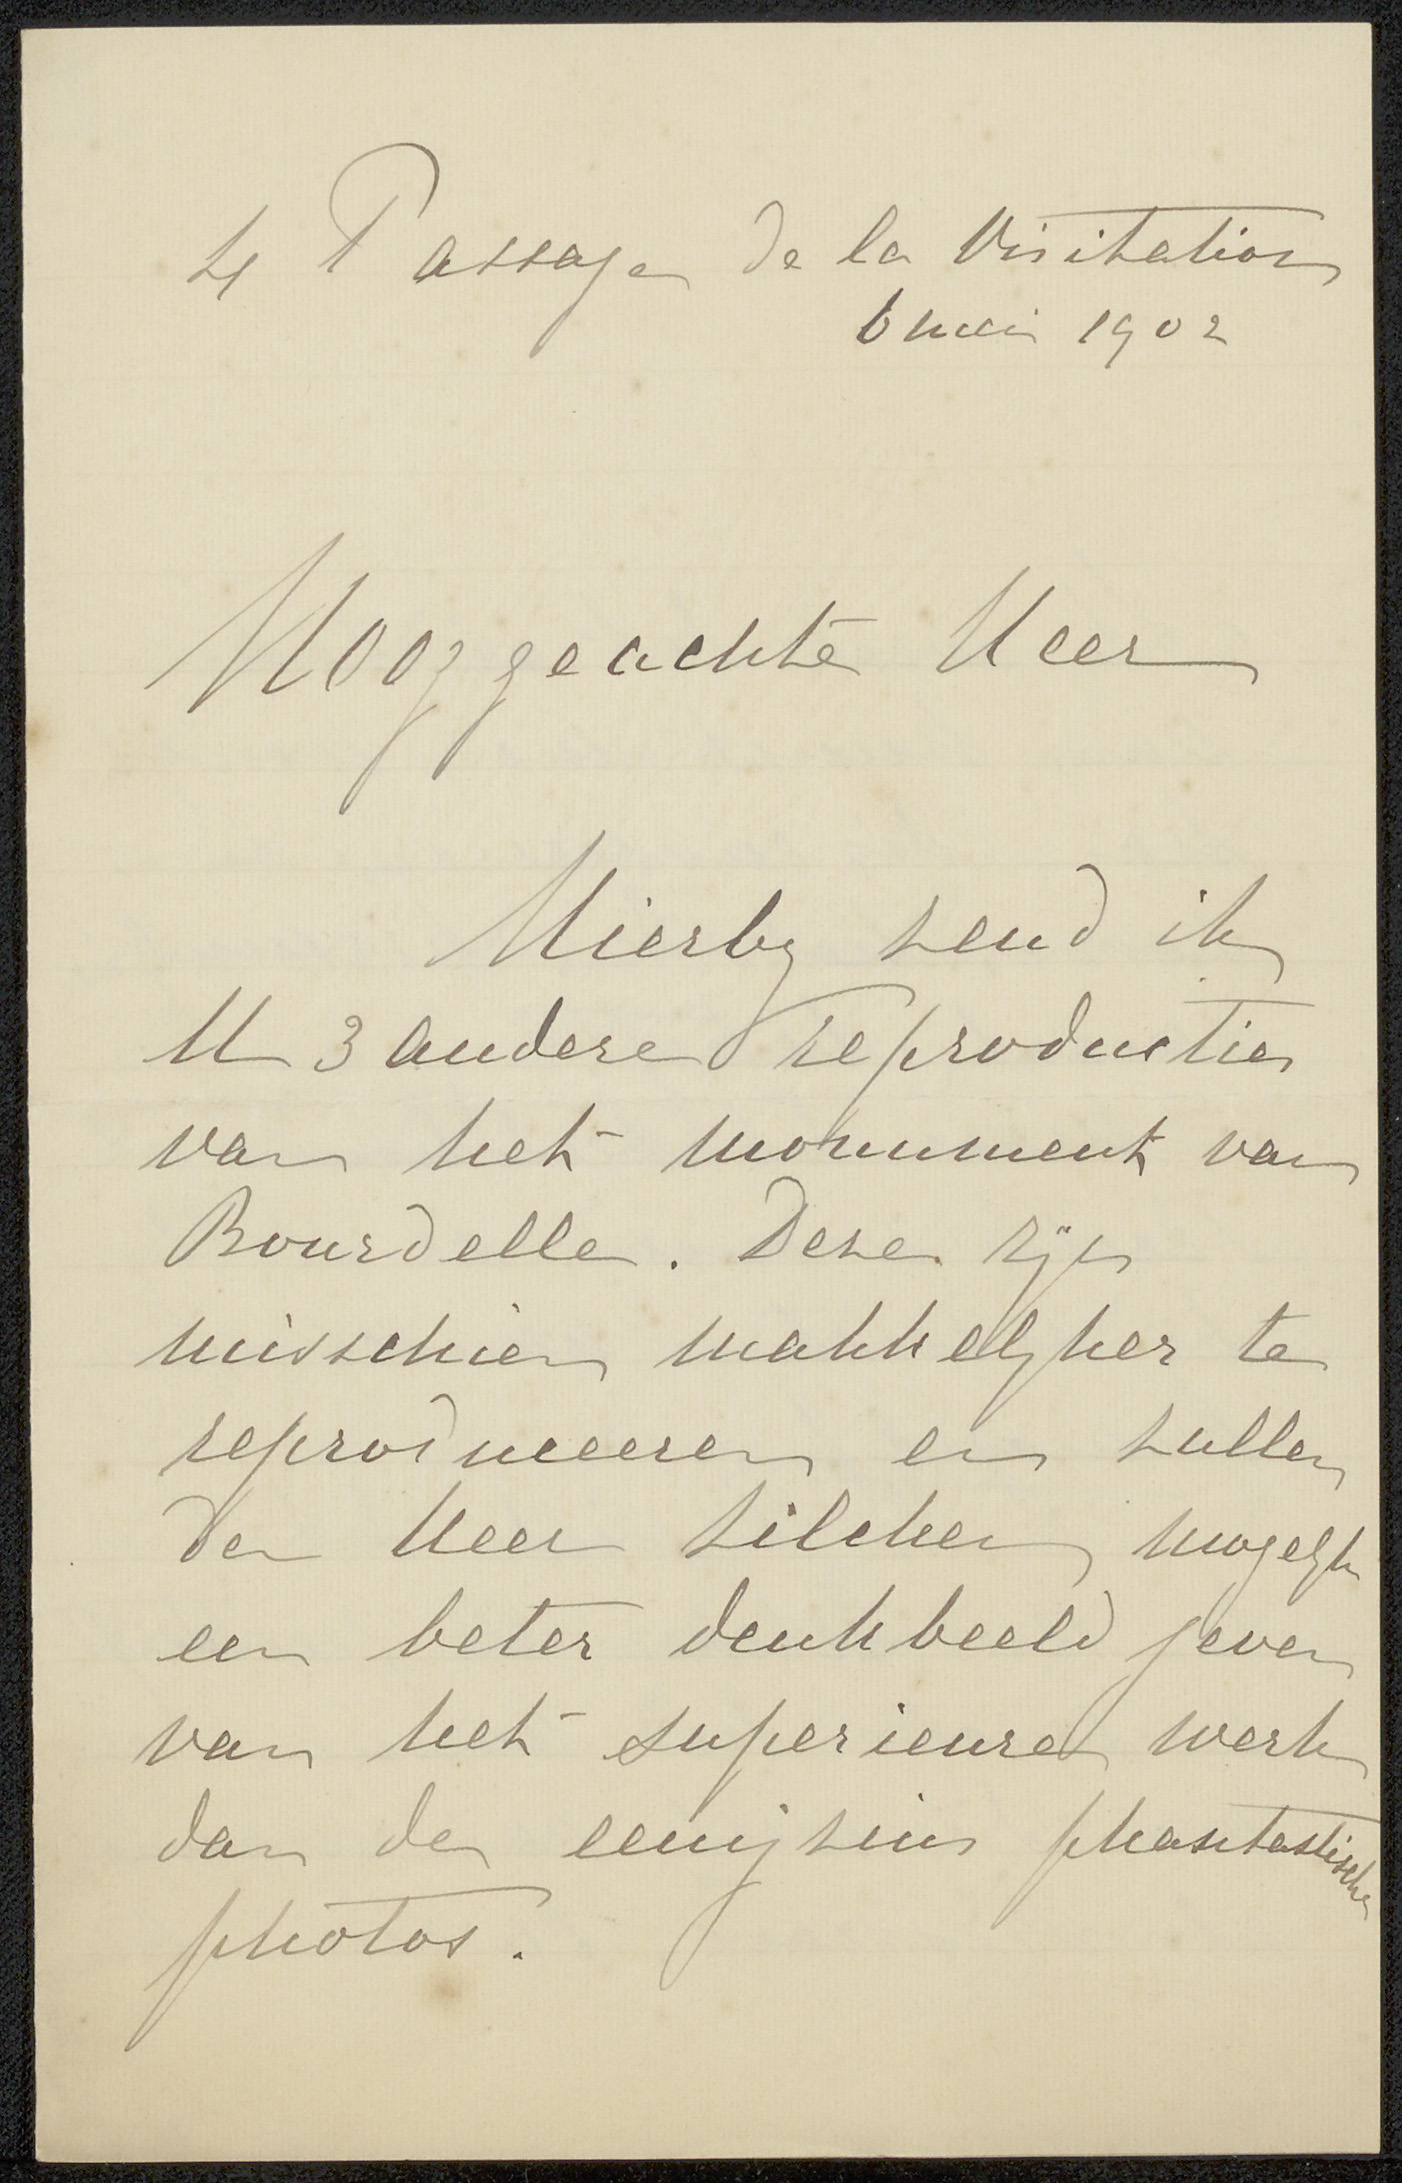 4 Passage de la Visitation
6 mei 1902
Hooggeachte Heer
Hierby zend ik
U 3 andere reproductien
van het monument van
Bourdelle. Deze zijn
misschien makkelijker te
reproduceeren en zullen
den Heer Zilcken mogelijk
een beter denkbeeld geven
van het superieure werk
dan de eenigzins phantastische
photos.